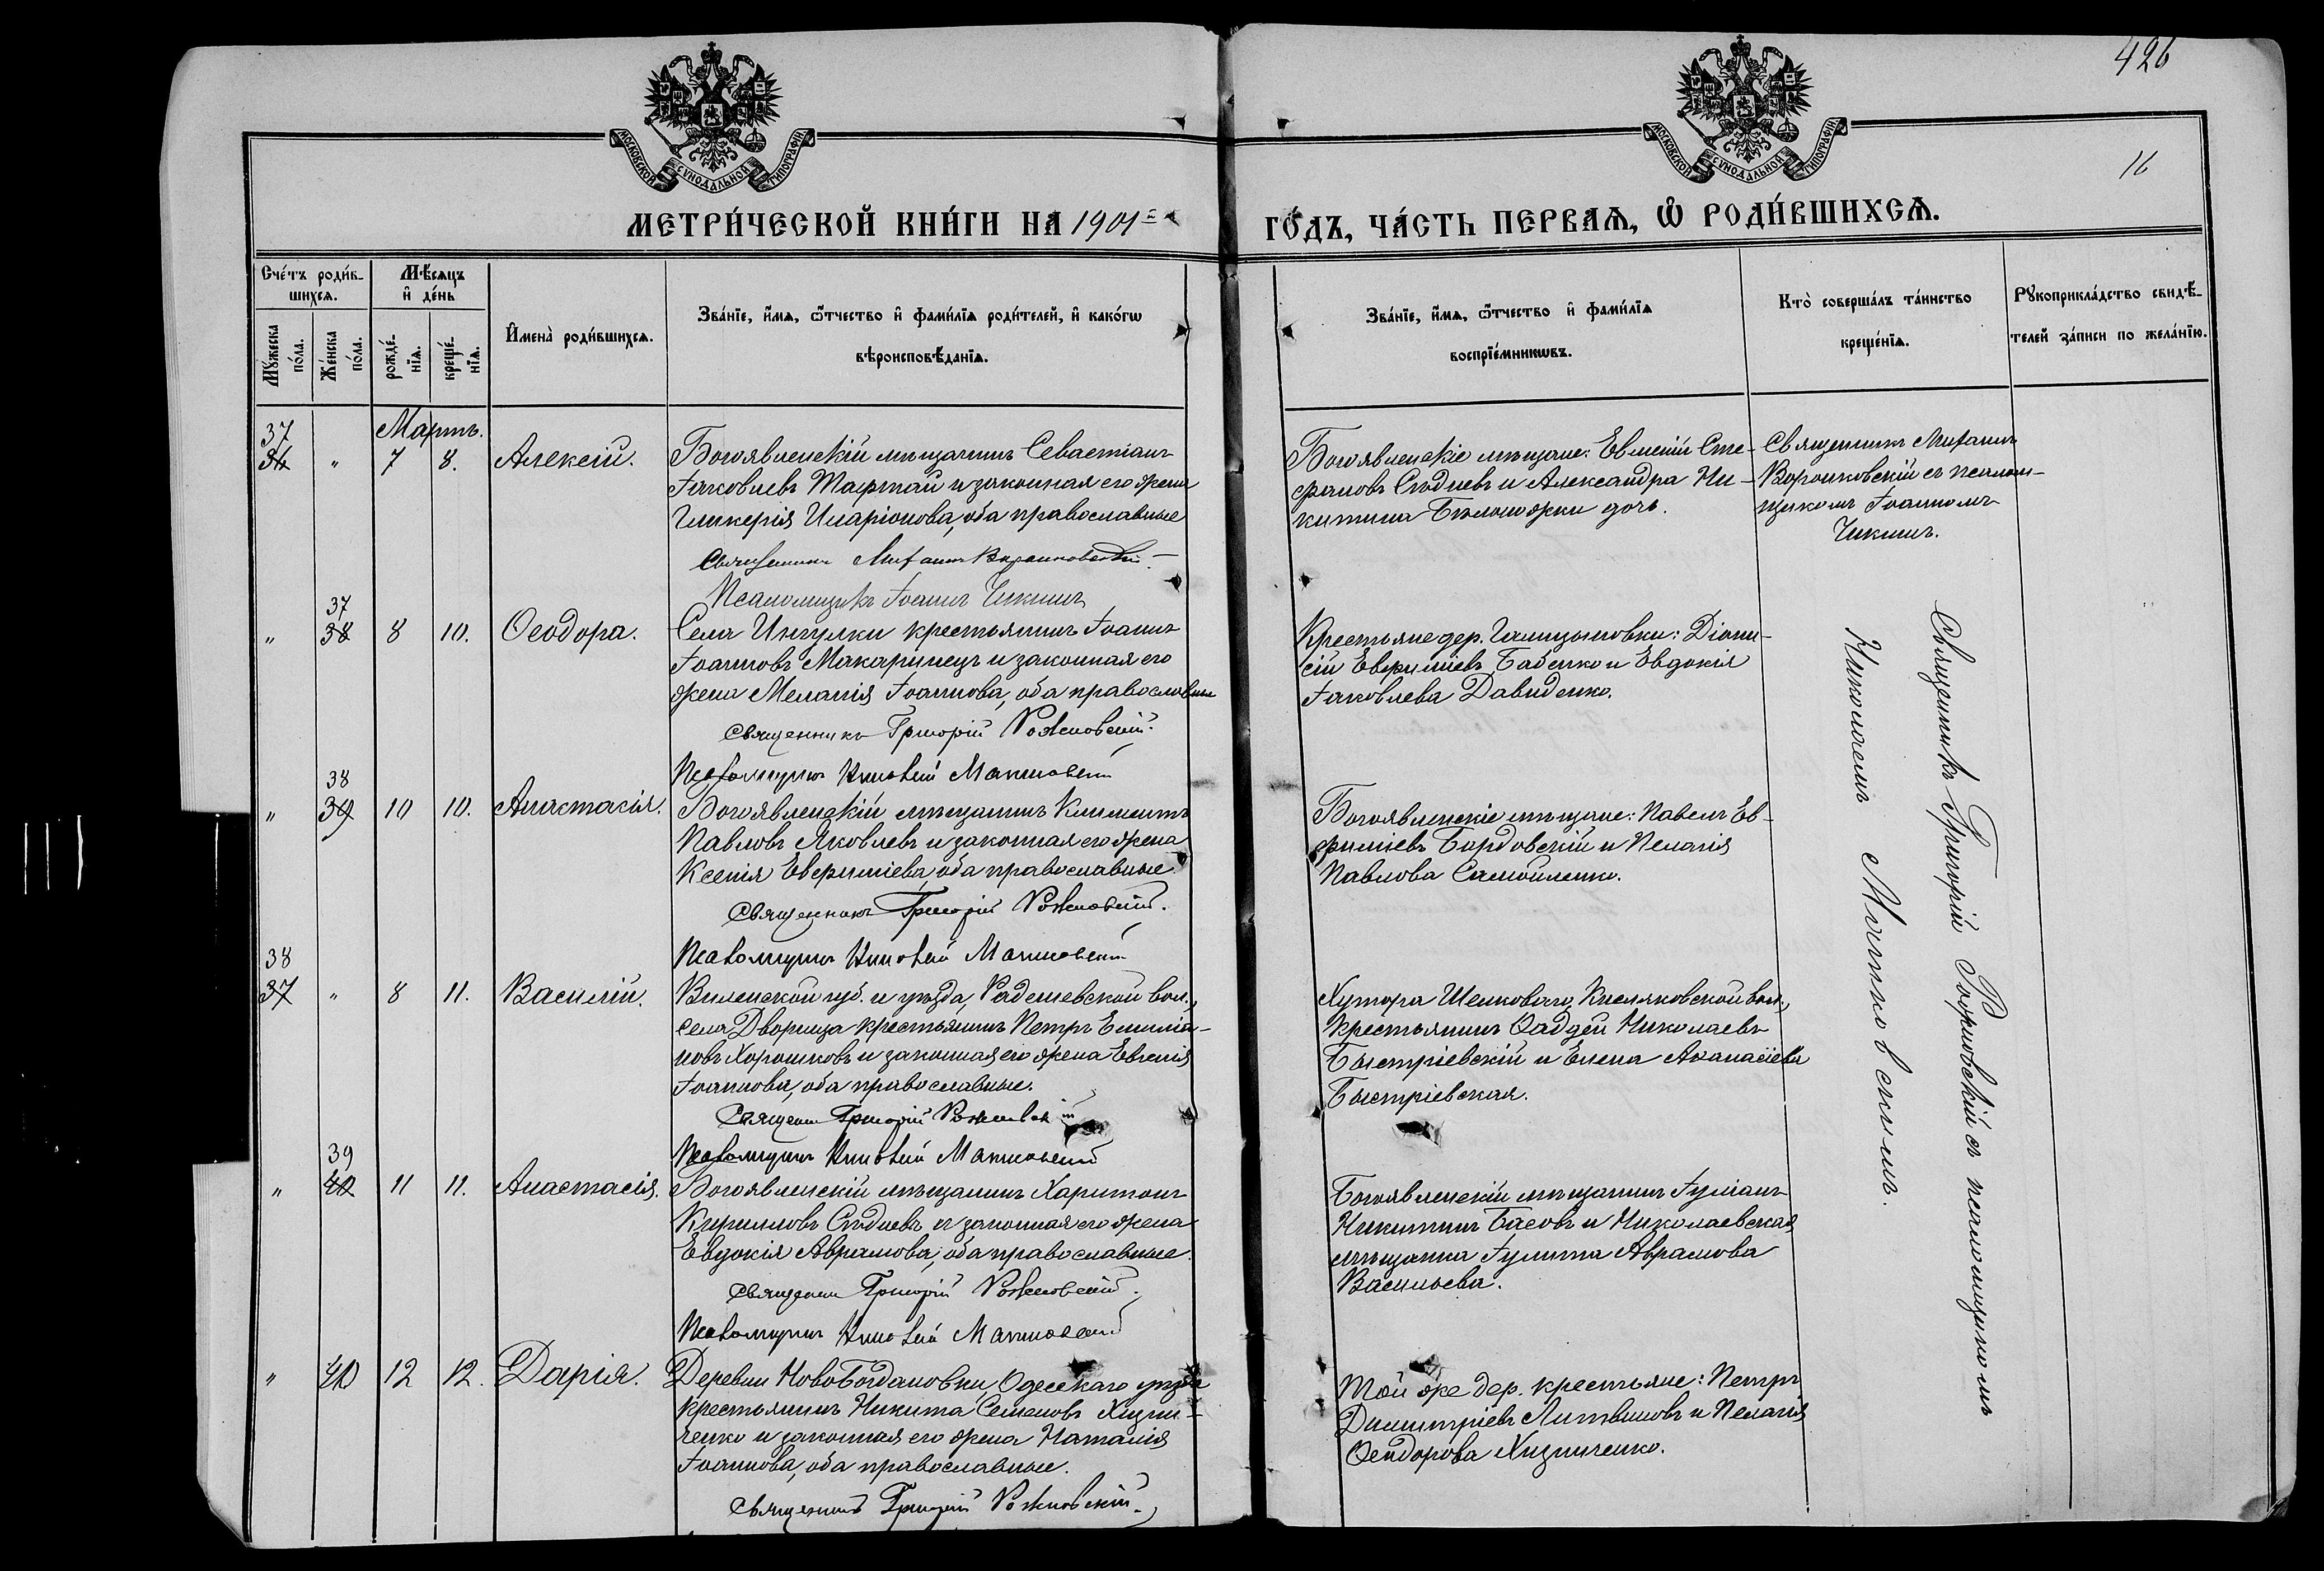 426
16
МОСКОВСКОЙ СѴНОДАЛЬНОЙ ТИПОГРАФІИ
МОСКОВСКОЙ СѴНОДАЛЬНОЙ ТИПОГРАФІИ
МЕТРИ́ЧЕСКОЙ КНИ́ГИ НА 1901 й
ГО́ДЪ, ЧА́СТЬ ПЕРВАѦ, Ѡ҆ РОДИ́ВШИХСѦ.
Сче́тъ роди́в-
шихсѧ.
Мꙋ́жеска по́ла.
Же́нска по́ла.
Мѣ́сѧцъ
и҆ де́нь
рожде́-нїѧ.
креще́-нїѧ.
И҆мена̀ роди́вшихсѧ.
Зва́нїе, и҆́мѧ, ѻ҆́тчество и҆ фами́лїѧ роди́телей, и҆ како́гѡ
вѣроисповѣ́данїѧ.
Зва́нїе, и҆́мѧ, ѻ҆́тчество и҆ фами́лїѧ
воспрїе́мникѡвъ.
Кто̀ соверша́лъ та́инство
креще́нїѧ.
Рꙋкоприкла́дство свидѣ́-
телей за́писи по жела́нїю.
Мартъ.
37
36 " 7 8. Алексій.
Богоявленскій мѣщанинъ Севастіанъ
Іаковлевъ Тафтай и законная его жена
Гликерія Иларіонова, оба православные
Священникъ Михаилъ Ворошковскій
Псаломщикъ Іоаннъ Чикинъ
Богоявленскіе мѣщане: Евменій Сте-
фановъ Слѣдневъ и Александра Ни-
китина Бѣлоножки дочь.
Священникъ Михаилъ
Ворошковскій съ псалом-
щикомъ Іоанномъ
Чикинъ.
37
" 38 8 10. Ѳеодора.
Села Ингулки крестьянинъ Іоаннъ
Іоанновъ Макаринецъ и законная его
жена Меланія Іоаннова, оба православные
Священникъ Григорій Рожновскій.
Псаломщикъ Николай
Крестьяне дер. Галицыновки: Діони-
сій Евфиміевъ Бабенко и Евдокія
Іаковлева Давиденко.
Священникъ Григорій Рожновскій съ псаломщикомъ
Николаемъ
38
" 39 10 10. Анастасія.
Богоявленскій мѣщанинъ Климентъ
Павловъ Яковлевъ и законная его жена
Ксенія Евфиміева, оба православные.
Священникъ Григорій Рожновскій.
Псаломщикъ Николай
Богоявленскіе мѣщане: Павелъ Ев-
фиміевъ Бордовскій и Пелагія
Павлова Самойленко.
38
37 " 8 11. Василій.
Виленской губ. и уѣзда, Радешевской вол.,
села Дворища крестьянинъ Петръ Емиліа-
новъ Хорошковъ и законная его жена Евгенія
Іоаннова, оба православные.
Священ. Григорій Рожновскій
Псаломщикъ Николай
Хутора Шелковаго, Кисляковской вол.,
крестьянинъ Ѳаддей Николаевъ
Быстріевскій и Елена Аѳанасіева
Быстріевская.
39
" 40 11 11. Анастасія.
Богоявленскій мѣщанинъ Харитонъ
Кирилловъ Слѣдневъ и законная его жена
Евдокія Аврамова, оба православные.
Священн. Григорій Рожновскій.
Псаломщикъ Николай
Богоявленскій мѣщанинъ Іуліанъ
Никитинъ Басовъ и Николаевская
мѣщанка Іулитта Аврамова
Васильева.
" 40 12 12. Дарія.
Деревни НовоБогдановки, Одесскаго уѣзда
крестьянинъ Никита Семеновъ Хизни-
ченко и законная его жена Наталія
Іоаннова, оба православные.
Священникъ Григорій Рожновскій.
Той же дер. крестьяне: Петръ
Димитріевъ Литвиновъ и Пелагія
Ѳеодорова Хизниченко.